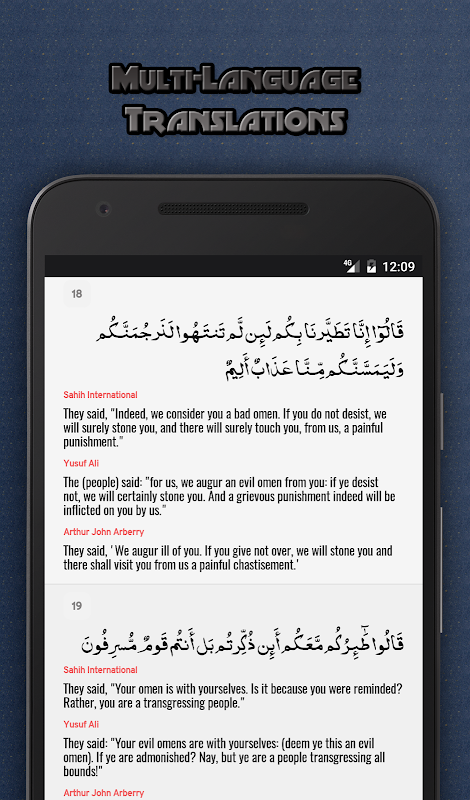 Multi-Language
Translations
4G 12:09
18
قَالُوٓا۟ إِنَّا تَطَيَّرْنَا بِكُمْ لَئِن لَّمْ تَنتَهُوا۟ لَنَرْجُمَنَّكُمْ
وَلَيَمَسَّنَّكُم مِّنَّا عَذَابٌ أَلِيمٌ
Sahih International
They said, "Indeed, we consider you a bad omen. If you do not desist, we
will surely stone you, and there will surely touch you, from us, a painful
punishment."
Yusuf Ali
The (people) said: "for us, we augur an evil omen from you: if ye desist
not, we will certainly stone you. And a grievous punishment indeed will be
inflicted on you by us."
Arthur John Arberry
They said, 'We augur ill of you. If you give not over, we will stone you and
there shall visit you from us a painful chastisement.'
19
قَالُوا۟ طَٰٓئِرُكُم مَّعَكُمْ أَئِن ذُكِّرْتُم بَلْ أَنتُمْ قَوْمٌ مُّسْرِفُونَ
Sahih International
They said, "Your omen is with yourselves. Is it because you were reminded?
Rather, you are a transgressing people."
Yusuf Ali
They said: "Your evil omens are with yourselves: (deem ye this an evil
omen). If ye are admonished? Nay, but ye are a people transgressing all
bounds!"
Arthur John Arberry